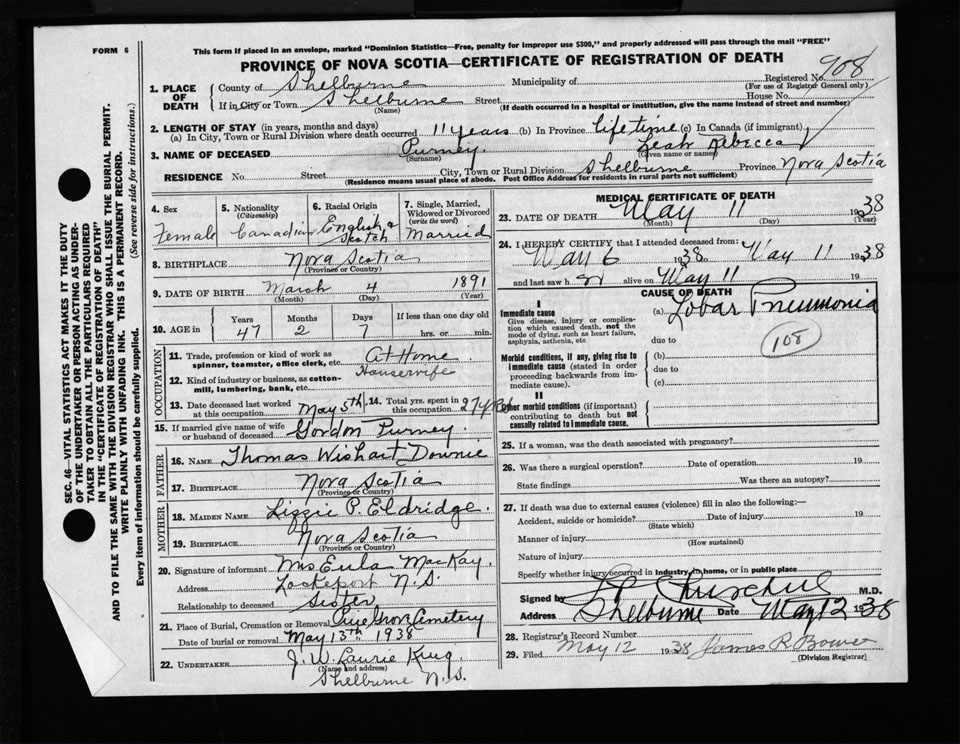 FORM 6
This form if placed in an envelope, marked "Dominion Statistics—Free, penalty for improper use $300," and properly addressed will pass through the mail "FREE"
PROVINCE OF NOVA SCOTIA—CERTIFICATE OF REGISTRATION OF DEATH
Registered No. 908
(For use of Registrar General only)
1. PLACE OF DEATH
County of Shelburne Municipality of
If in City or Town Shelburne Street House No.
(Name) (If death occurred in a hospital or institution, give the name instead of street and number)
2. LENGTH OF STAY (in years, months and days)
(a) In City, Town or Rural Division where death occurred 11 years (b) In Province lifetime (c) In Canada (if immigrant)
3. NAME OF DECEASED Purney Leah Rebecca
(Surname) (Given name or names)
RESIDENCE No. Street City, Town or Rural Division Shelburne Province Nova Scotia
(Residence means usual place of abode. Post Office Address for residents in rural parts not sufficient)
4. Sex
Female
5. Nationality
(Citizenship)
Canadian
6. Racial Origin
English & Scotch
7. Single, Married, Widowed or Divorced
(write the word)
Married
8. BIRTHPLACE Nova Scotia
(Province or Country)
9. DATE OF BIRTH March 4 1891
(Month) (Day) (Year)
10. AGE in
Years Months Days If less than one day old
47 2 7 hrs. or min.
OCCUPATION
11. Trade, profession or kind of work as spinner, teamster, office clerk, etc. At Home
Housewife
12. Kind of industry or business, as cotton-mill, lumbering, bank, etc.
13. Date deceased last worked at this occupation May 5th 14. Total yrs. spent in this occupation 27
15. If married give name of wife or husband of deceased Gordon Purney.
FATHER
16. NAME Thomas Wishart Downie
17. BIRTHPLACE Nova Scotia
(Province or Country)
MOTHER
18. MAIDEN NAME Lizzie P. Eldridge.
19. BIRTHPLACE Nova Scotia
(Province or Country)
20. Signature of informant Mrs Eula MacKay.
Address Lockeport N.S.
Relationship to deceased Sister
21. Place of Burial, Cremation or Removal Pine Grove Cemetery
Date of burial or removal May 13th 1938
22. UNDERTAKER J. W. Laurie King.
(Name and address)
Shelburne N.S.
MEDICAL CERTIFICATE OF DEATH
23. DATE OF DEATH May 11 1938
(Month) (Day) (Year)
24. I HEREBY CERTIFY that I attended deceased from:
May 6 1938 to May 11 1938
and last saw h er alive on May 11 19
CAUSE OF DEATH
I
Immediate cause
Give disease, injury or complication which caused death, not the mode of dying, such as heart failure, asphyxia, asthenia, etc
(a) Lobar Pneumonia
108
due to
Morbid conditions, if any, giving rise to immediate cause (stated in order proceeding backwards from immediate cause).
(b)
due to
(c)
II
Other morbid conditions (if important) contributing to death but not causally related to immediate cause.
25. If a woman, was the death associated with pregnancy?
26. Was there a surgical operation? Date of operation 19
State findings Was there an autopsy?
27. If death was due to external causes (violence) fill in also the following:—
Accident, suicide or homicide? Date of injury 19
(State which)
Manner of injury
(How sustained)
Nature of injury
Specify whether injury occurred in industry, in home, or in public place
Signed by Churchill M.D.
Address Shelburne Date May 12 38
28. Registrar's Record Number
29. Filed May 12 1938 James R Bower
(Division Registrar)
SEC. 46—VITAL STATISTICS ACT MAKES IT THE DUTY
OF THE UNDERTAKER OR PERSON ACTING AS UNDERTAKER
TO OBTAIN ALL THE PARTICULARS REQUIRED
IN THE "CERTIFICATE OF REGISTRATION OF DEATH"
AND TO FILE THE SAME WITH THE DIVISION REGISTRAR WHO SHALL ISSUE THE BURIAL PERMIT.
WRITE PLAINLY WITH UNFADING INK. THIS IS A PERMANENT RECORD.
Every item of information should be carefully supplied. (See reverse side for instructions.)